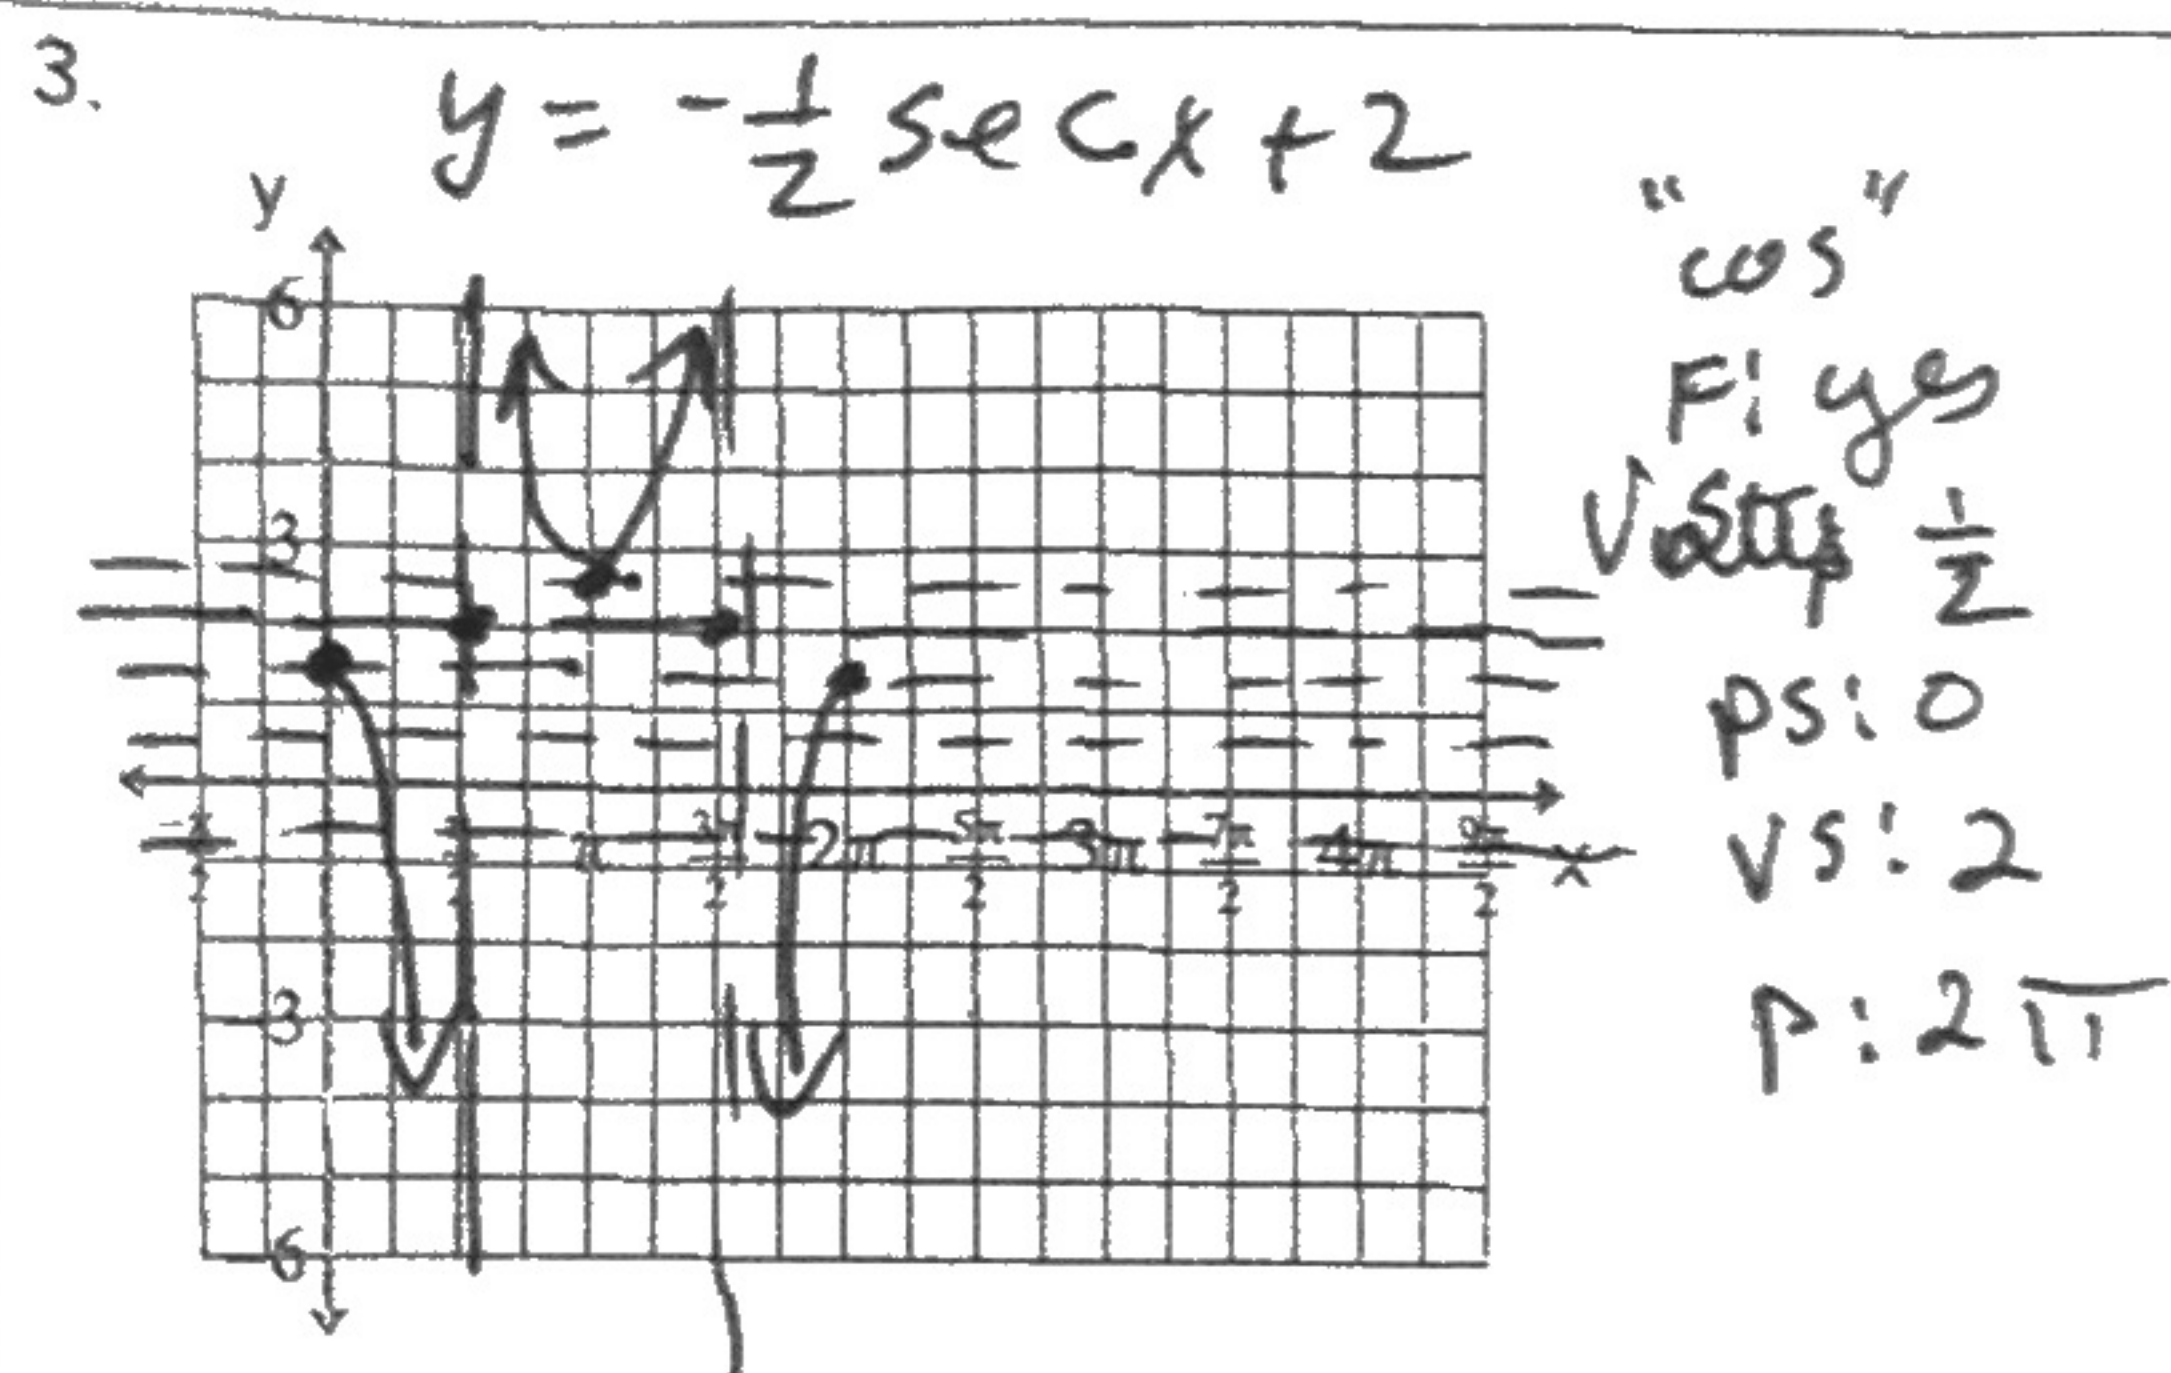 3.
y = -1/2 sec x + 2
y
6
3
-π/2 π/2 π 3π/2 2π 5π/2 3π 7π/2 4π 9π/2 x
-3
-6
"cos"
F: yes
1/2
ps: 0
vs: 2
p: 2π